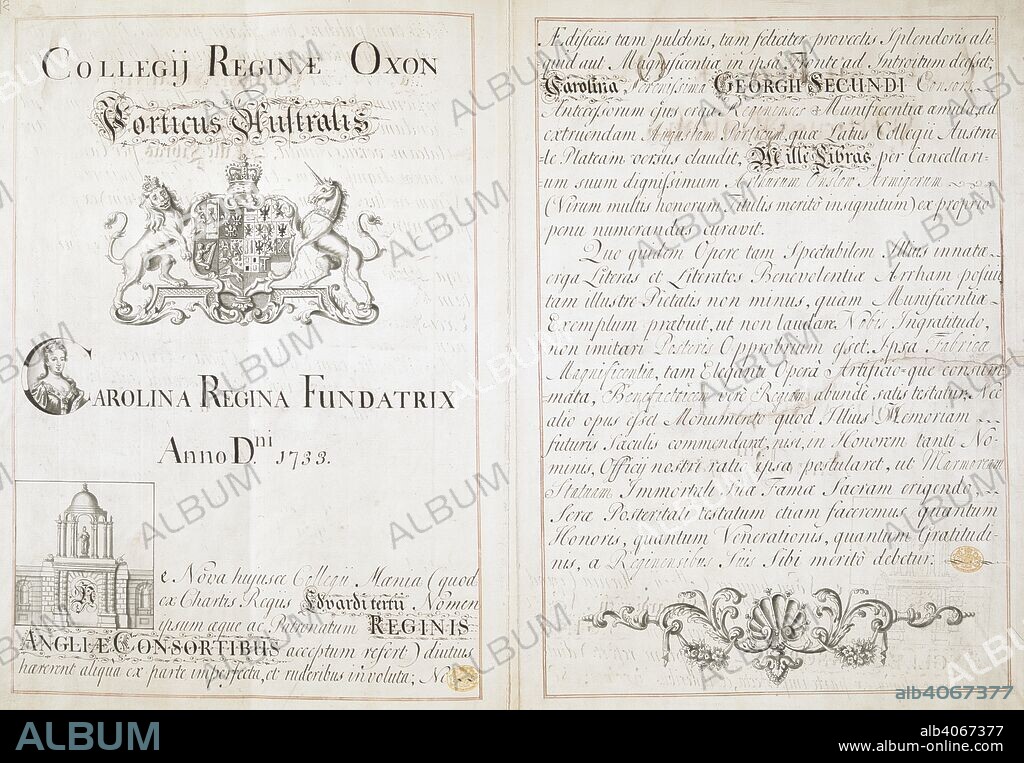 COLLEGIJ REGINÆ OXON
Porticus Australis
CAROLINA REGINA FUNDATRIX
Anno D.ni 1733.
Ne Nova hujusce Collegii Mænia (quod
ex Chartis Regus Edvardi tertii Nomen
ipsum æque ac Patronatum REGINIS
ANGLIÆ CONSORTIBUS acceptum refert) diutius
hærerent aliqua ex parte imperfecta, et ruderibus involuta; Ne
Ædificiis tam pulchris, tam feliciter provectis Splendoris ali
quid aut Magnificentiæ in ipsâ Fronte ad Introitum deesset;
Carolina, Serenissima GEORGII SECUNDI Consors
Antecessorum ejus erga Reginenses Munificentiâ æmula, ad
extruendam Augustam Porticum quæ Latus Collegii Austra-
le Plateam versus claudit, Mille Libras per Cancellari-
=um suum dignissimum Arthurum Onslow Armigerum
(Virum multis honorum Titulis meritò insignitum) ex proprio
penu numerandas curavit.
Quo quidem Opere tam Spectabilem Illius innatæ
erga Literas et Literatos Benevolentiæ Arrham posuit
tam illustre Pietatis non minus, quàm Munificentiæ
Exemplum præbuit, ut non laudare Nobis Ingratitudo,
non imitari Posteris Opprobrium esset. Ipsa Fabricæ
Magnificentia, tam Eleganti Operâ Artificio-que consum
mata, Benefactorem verè Regium abundè satis testatur. Nec
alio opus esset Monumento quod Illius Memoriam
futuris Sæculis commendaret, nisi, in Honorem tanti No-
minis, Officij nostri ratio ipsa postularet, ut Marmoream
Statuam Immortali Suæ Famæ Sacram erigendo,
Seræ Posteritati testatum etiam faceremus quantum
Honoris, quantum Venerationis, quantum Gratitudi-
nis, a Reginensibus Suis Sibi meritò debetur.
ALBUM
alb4067377
ALBUM
alb4067377
www.album-online.com